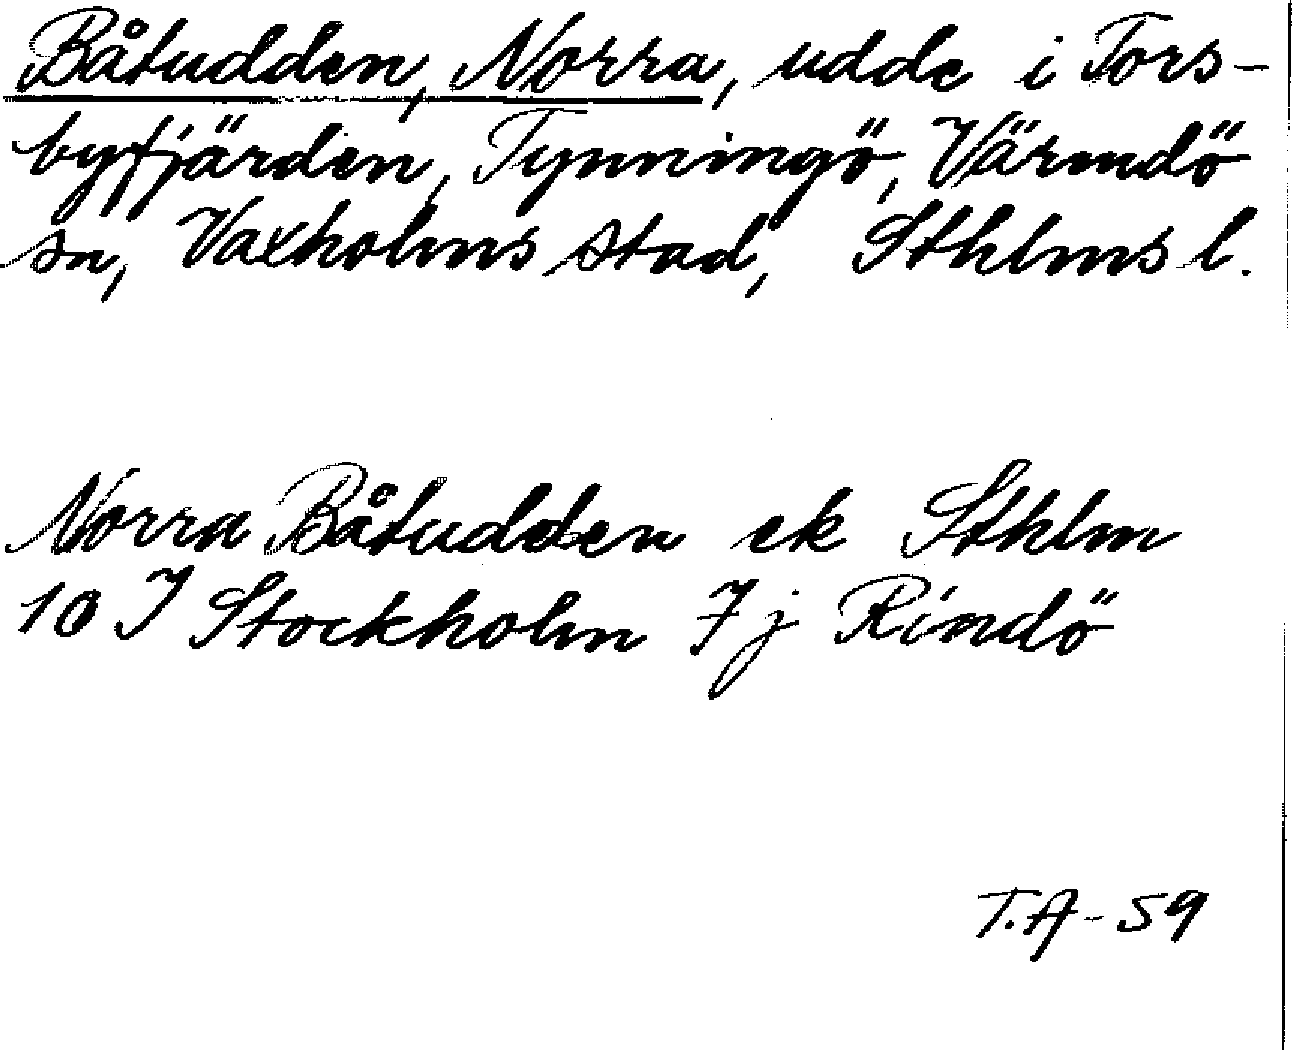 Båtudden, Norra, udde i Tors-
byfjärden, Tynningö, Värmdö
sn, Vaxholms stad, Sthlms l.
Norra Båtudden ek Sthlm
10 I Stockholm 7j Rindö
T.A-59